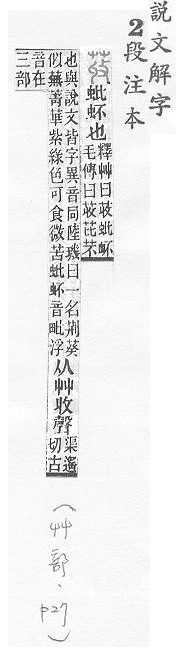 說文解字
2段注本
荍
蚍衃也
釋艸曰荍蚍衃
毛傳曰荍芘芣
也與說文皆字異音同陸璣曰一名荊葵
似蕪菁華紫綠色可食微苦蚍衃音毗浮
从艸收聲
渠遙
切古
音在
三部
(艸部、p27)